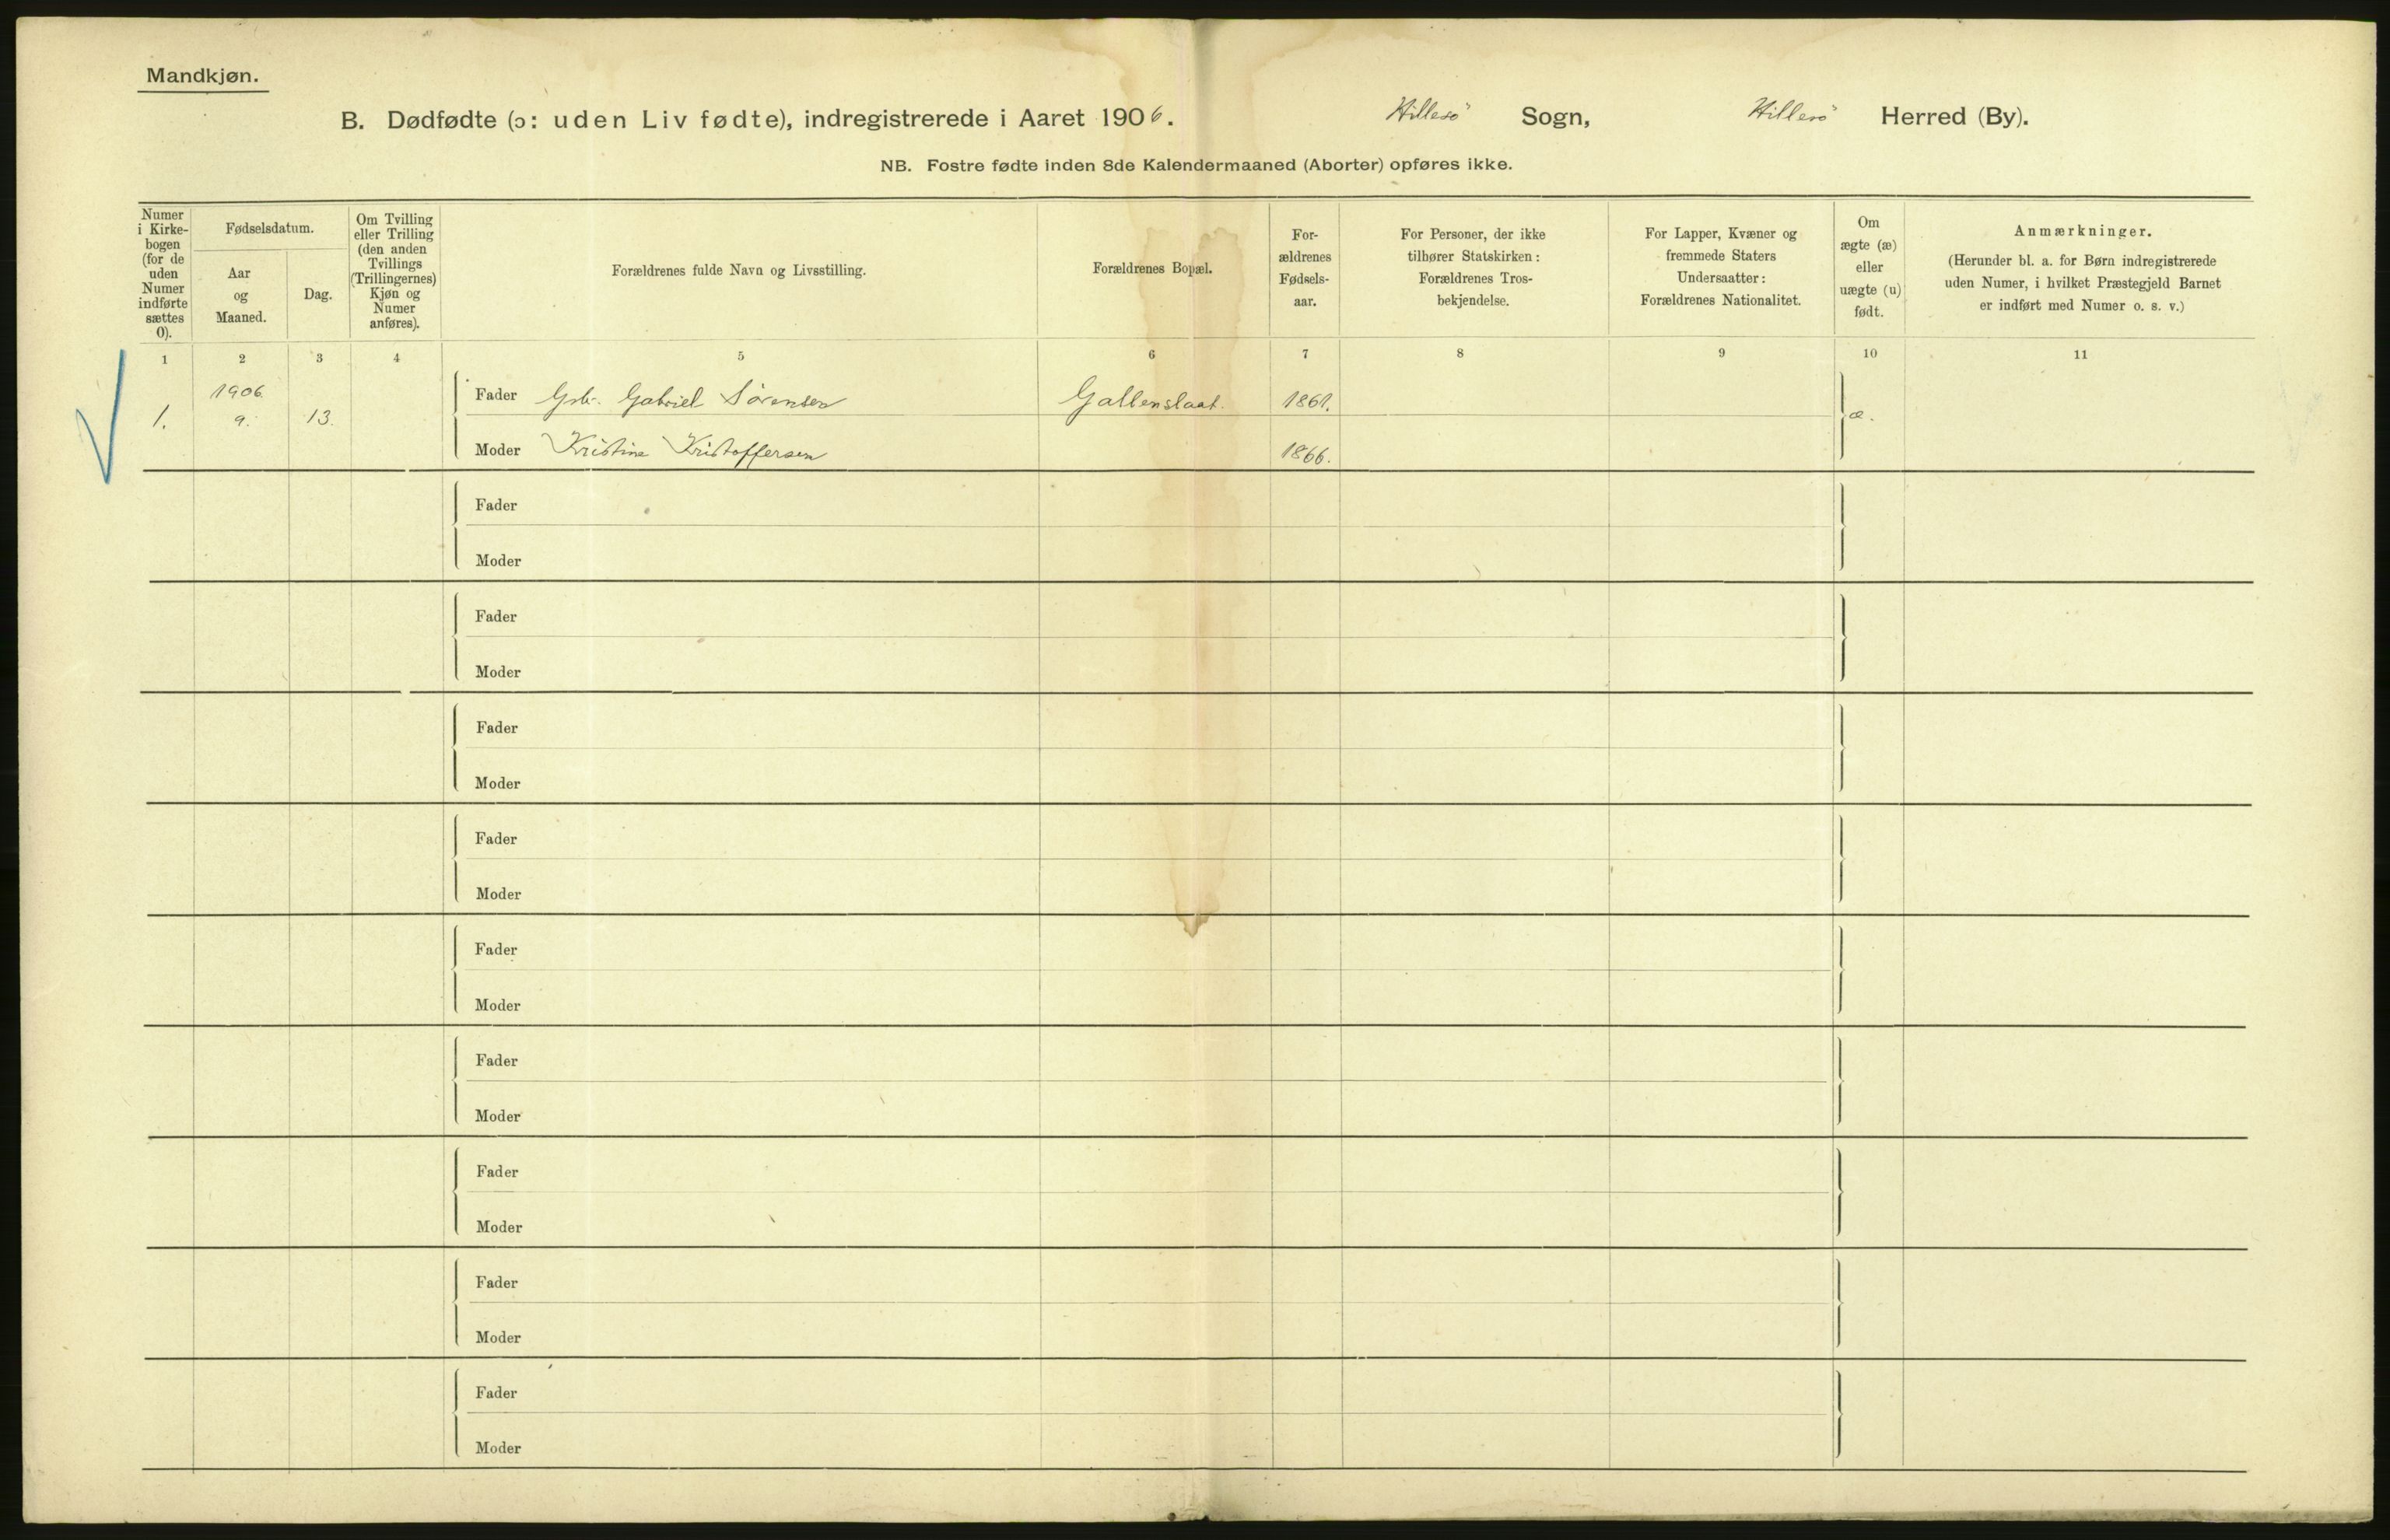 Mandkjøn.
B. Dødfødte (ɔ: uden Liv fødte), indregistrerede i Aaret 1906. Hillesö Sogn, Hillesö Herred (By).
NB. Fostre fødte inden 8de Kalendermaaned (Aborter) opføres ikke.
Numer
i Kirke-
bogen
(for de
uden
Numer
indførte
sættes
0).
Fødselsdatum.
Aar
og
Maaned.
Dag.
Om Tvilling
eller Trilling
(den anden
Tvillings
(Trillingernes)
Kjøn og
Numer
anføres).
Forældrenes fulde Navn og Livsstilling.
Forældrenes Bopæl.
For-
ældrenes
Fødsels-
aar.
For Personer, der ikke
tilhører Statskirken:
Forældrenes Tros-
bekjendelse.
For Lapper, Kvæner og
fremmede Staters
Undersaatter:
Forældrenes Nationalitet.
Om
ægte (æ)
eller
uægte (u)
født.
Anmærkninger.
(Herunder bl. a. for Børn indregistrerede
uden Numer, i hvilket Præstegjeld Barnet
er indført med Numer o. s. v.)
1 2 3 4 5 6 7 8 9 10 11
1906
1. 9. 13. Fader Gbr. Gabriel Sørensen Gallenslaat. 1861. æ.
Moder Kristine Kristoffersen 1866.
Fader
Moder
Fader
Moder
Fader
Moder
Fader
Moder
Fader
Moder
Fader
Moder
Fader
Moder
Fader
Moder
Fader
Moder